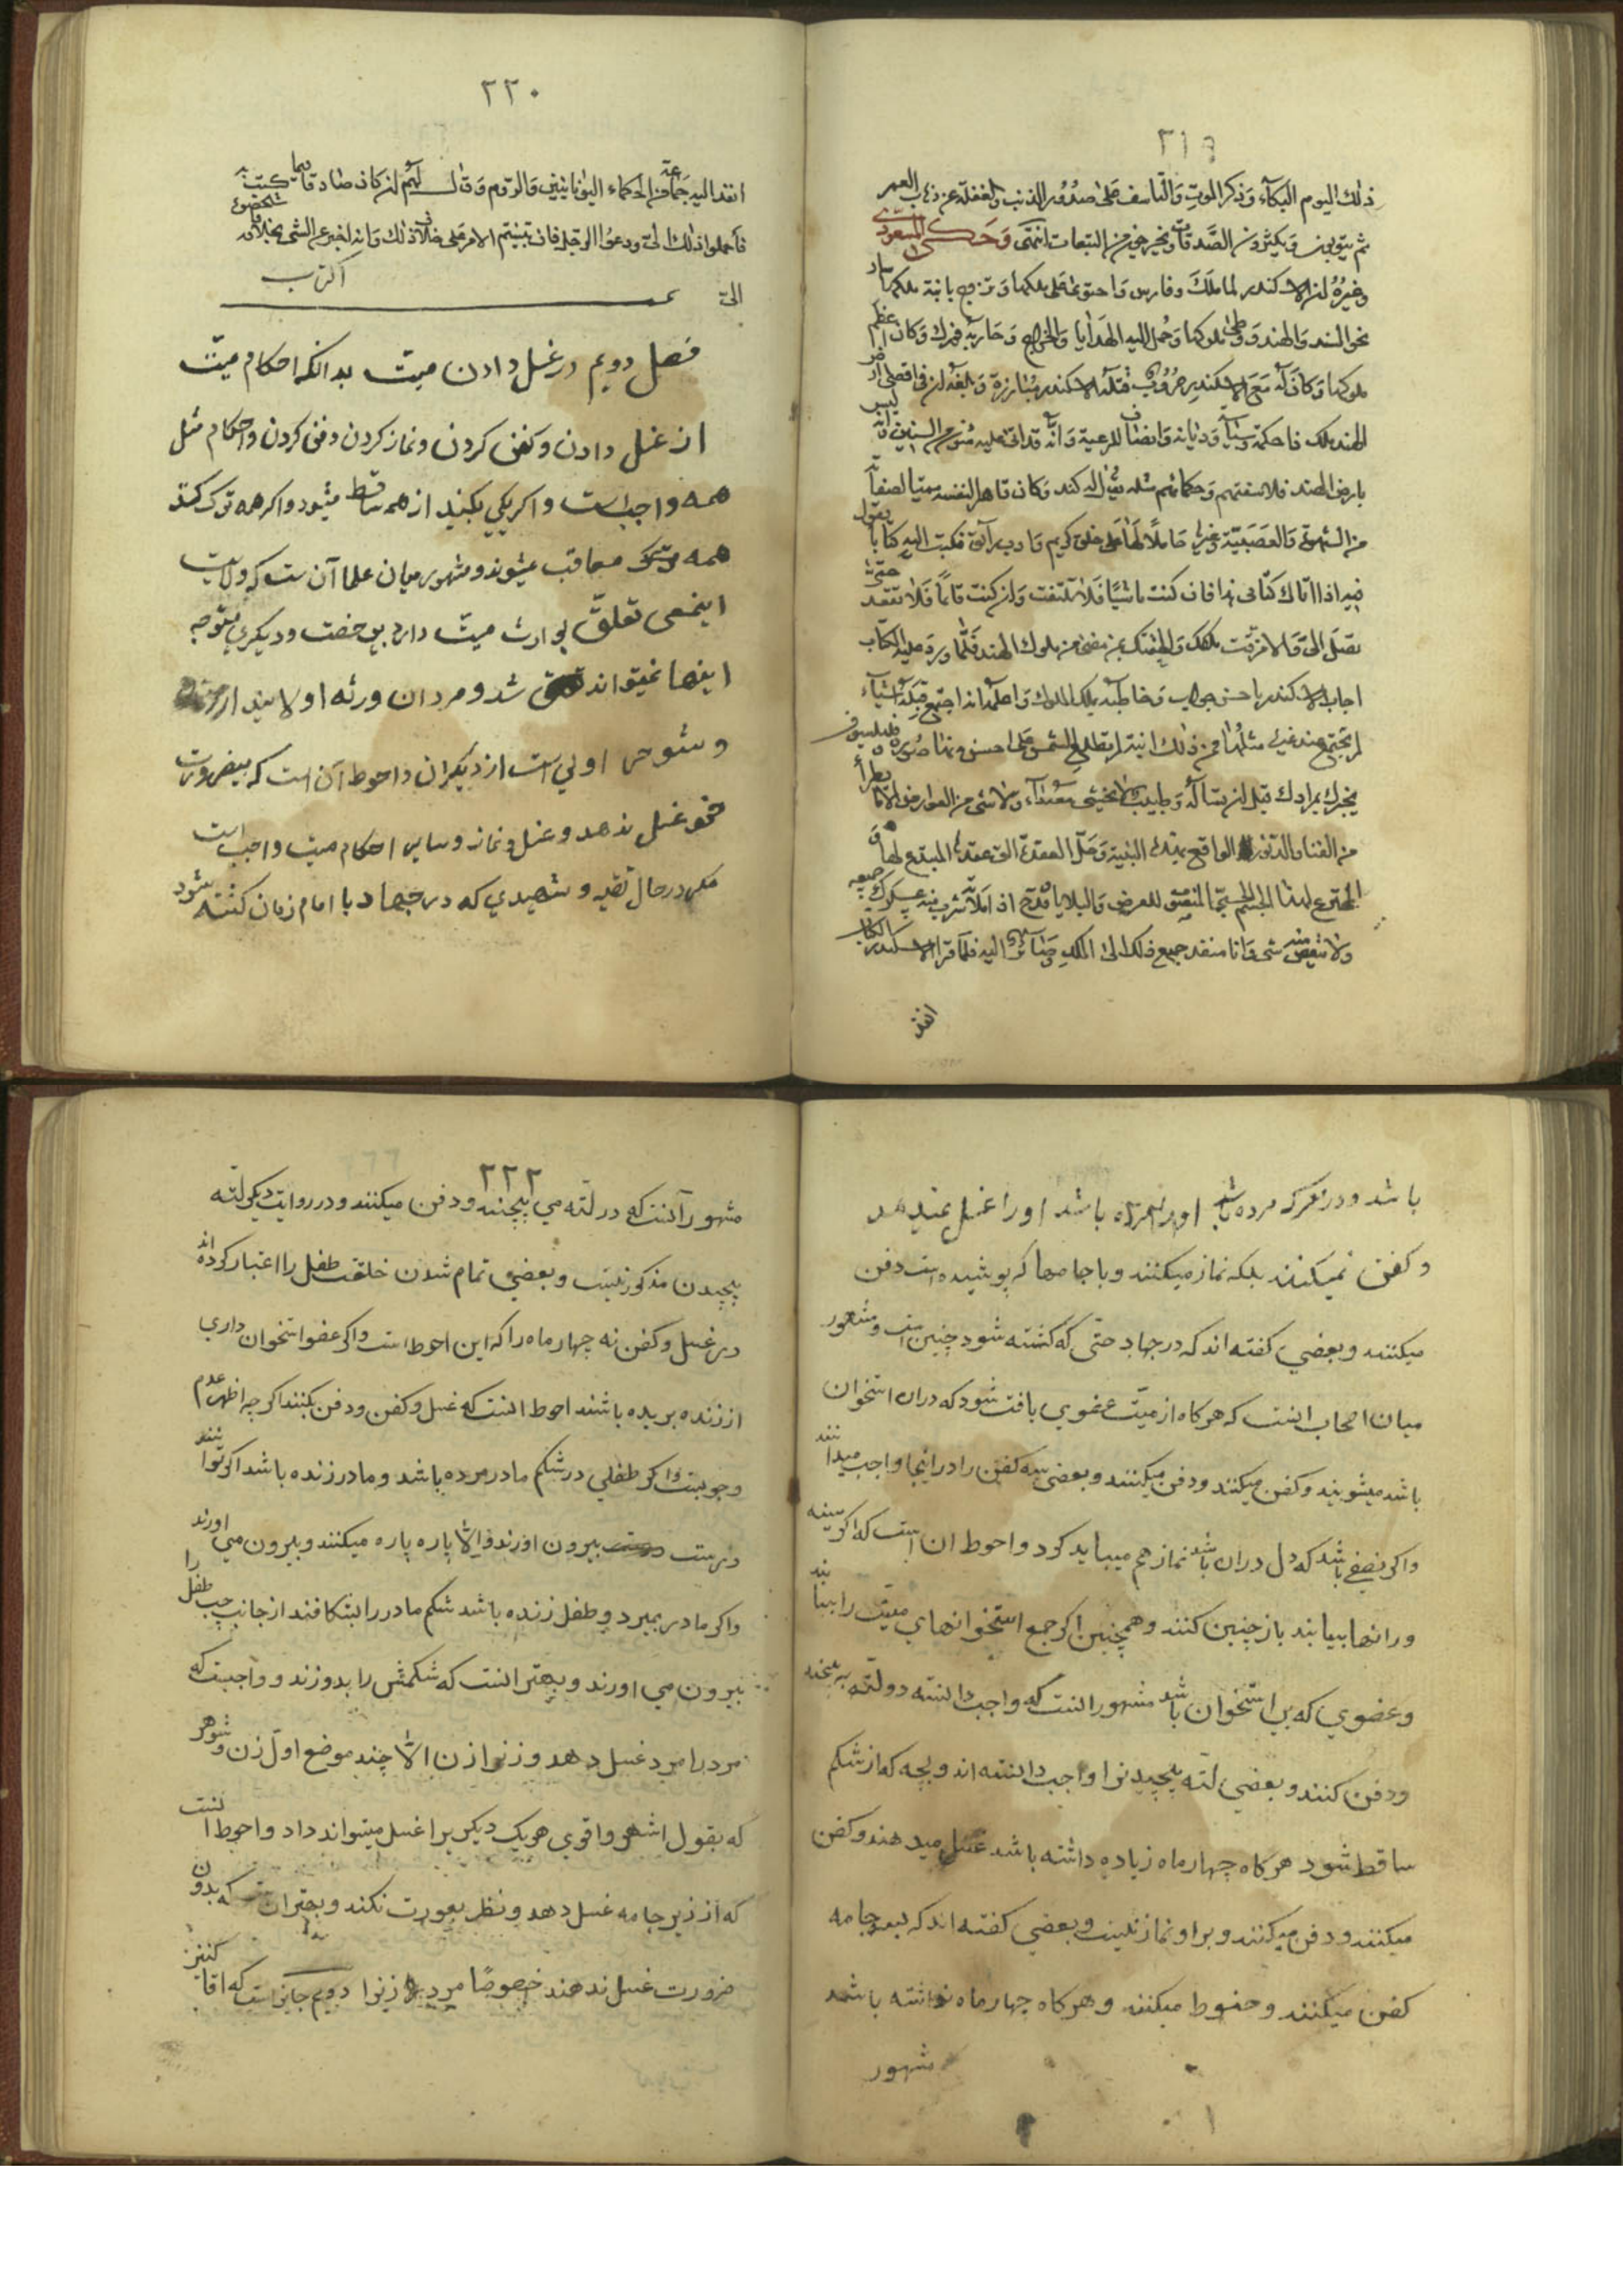 ٣١٩
ذلك اليوم البكآء وذكر الموت والتاسف على صدور الذنب والغفلة عن ذهاب العمر
ثم يتوبون ويكثرون الصدقات ويخرجون من التبعات انتهى وحكى المسعودي
وغيره ان الاسكندر لما ملك فارس واحتوى على ملكها وتزوج بابنة ملكها سار
نحو السند والهند ووطئ ملوكها وحمل اليه الهدايا والخراج وحاربه فورك وكان اعظم
ملوكها وكان له مع الاسكندر حروب قتله الاسكندر مبارزة وبلغه ان في اقصى ارض
الهند ملك ذا حكمة وسياسة وديانة وانصاف للرعية وانه قد اتى عليه من السنين وانه ليس
بارض الهند فلاسفتهم وحكمائهم مثله يقال له كند وكان قاهرا لنفسه مميتا لصفاته
من الشهوية والغضبية وغيرها حاملا لها على خلق كريم وادب رآئق فكتب اليه كتابا يقول
فيه اذا اتاك كتابى هذا فان كنت ماشيا فلا تلتفت وان كنت قائما فلا تقعد حتى
تصل الى والا مزقت ملكك والحقتك بمن مضى من ملوك الهند فلما ورد عليه الكتاب
اجاب الاسكندر باحسن جواب وخاطبه بملك الملوك واعلمه انه اجتمع قبله اشيآء
لم يجتمع عند غيره مثلها فمن ذلك ابنة لم تطلع الشمس على احسن منها صورة وفيلسوف
يخبرك بمرادك قبل ان تساله وطبيب لا يخشى معه داء ولا شى من العوارض الا ما يطرأ
من الفنا والدثور الواقع بهذه البنية وحل العقدة التى عقدها المبتدع لها و
المخترع لهذا الجسم الحسى المنصوب للعرض والبلايا وقدح اذا ملأته شرب منه عسكرك جميعه
ولا ينقص منه شى وانا منفذ جميع ذلك الى الملك وصائر اليه فلما قرأ الاسكندر الكتاب
انفذ
٢٢٠
انفذ اليه جماعة من الحكماء اليونانيين والروم وقال لهم ان كان صادقا فيما كتب به
فاحملوا ذلك الى ودعوا الرجل فان تبينتم الامر على خلاف ذلك وانه اخبر عن الشى بخلافه فاشخصوه
الى
فصل دويم در غسل دادن ميت بدانكه احكام ميت
از غسل دادن وكفن كردن ونماز كردن ودفن كردن واحكام مثل
همه واجبست واكر يكي بكنيد از همه ساقط ميشود واكر همه ترك كنند
همه معاقب ميشوند ومشهور ميان علما آن ست كه ولايت
اينمعنى تعلق بوارث ميت دارد بى رخصت وديكري متوجه
اينها نميتواند شد ومردان ورثه اولايند از زنان
وشوهر اولي است از ديكران واحوط آن است كه بيضرورت
غسل ندهد وغسل ونماز وساير احكام ميت واجب است
مكر در حال تقيه وشهيدي كه در جهاد با امام زمان كشته شود
باشد ودر معركه مرده باشد اورا نمرده باشد اورا غسل نميدهد
وكفن نميكنند بلكه نماز ميكنند وباجامها كه پوشيده است دفن
ميكنند وبعضي كفته اند كه در جهاد حتى كه كشته شود چنين است ومشهور
ميان اصحاب انست كه هركاه از ميت عضوي يافت شود كه دران استخوان
باشد ميشويند وكفن ميكنند ودفن ميكنند وبعضي سه كفن را در اينجا واجب ميدانند
واكر نصفي باشد كه دل دران باشد نماز هم ميبايد كرد واحوط ان است كه اكر سينه
ورانها بيابند باز چنين كنند وهمچنين اكر جمع استخوانهاي ميت را بيابند
وعضوي كه بى استخوان باشد مشهور انست كه واجب دانسته در لته پيچند
ودفن كنند وبعضي لته پيچيدنرا واجب دانسته اند وبچه كه از شكم
ساقط شود هركاه چهار ماه زياده داشته باشد غسل ميدهند وكفن
ميكنند ودفن ميكنند وبر او نماز نيست وبعضي كفته اند كه بسه جامه
كفن ميكنند وحنوط ميكنند وهركاه چهار ماه نداشته باشد
مشهور
٢٢٢
مشهور آنست كه در لته مي پيچند ودفن ميكنند ودر روايت ديكر لته
پيچيدن مذكور نيست وبعضي تمام شدن خلقت طفل را اعتبار كرده اند
در غسل وكفن نه چهار ماه را كه اين احوط است واكر عضو استخوان داري
از زنده بريده باشند احوط انست كه غسل وكفن ودفن بكنند اكرچه اظهر عدم
وجوبست واكر طفلي در شكم مادر مرده باشد ومادر زنده باشد اكر توانند
درست بيرون اورند والا پاره پاره ميكنند وبيرون مي اورند
واكر مادر بميرد وطفل زنده باشد شكم مادر را بشكافند از جانب چپ طفل را
بيرون مي اورند وبهتر انست كه شكمش را بدوزند وواجبست كه
مرد را مرد غسل دهد وزنرا زن الا چند موضع اول زن وشوهر
كه بقول اشهر واقوي هريك ديكريرا غسل ميتواند داد واحوط انست
كه از زير جامه غسل دهد ونظر بعورت نكند وبهتر انست كه بدون
ضرورت غسل ندهند خصوصا مرد زنرا دويم جايز است كه اقا كنيز